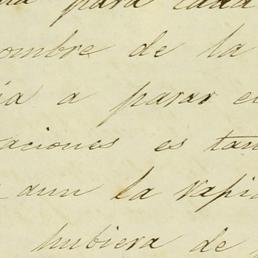 para cada
ombre de la
a parar e
aciones es tan
aun la rapi
hubiera de